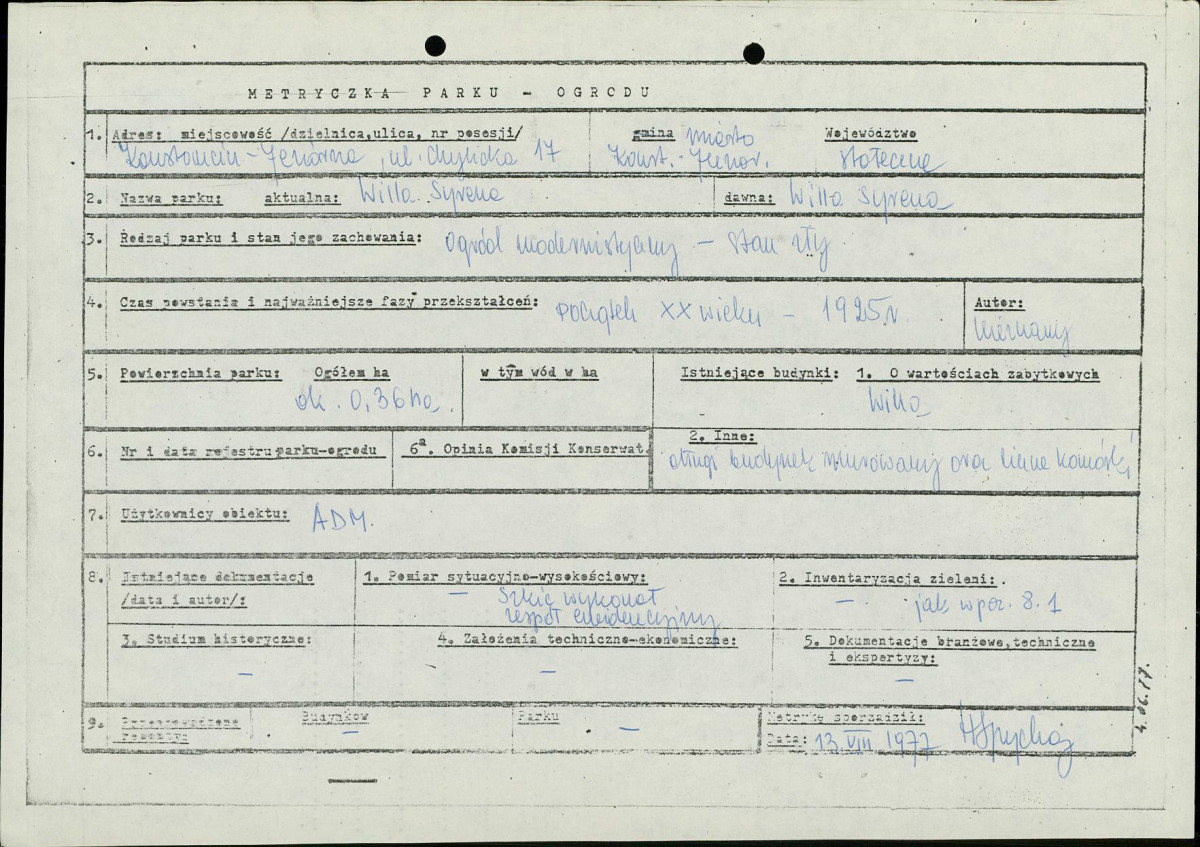 METRYCZKA PARKU - OGRODU
1. Adres: miejscowość /dzielnica,ulica, nr posesji/ gmina miasto Województwo
Konstancin-Jeziorna, ul. Chylicka 17 Konst.-Jezior. stołeczne
2. Nazwa parku: aktualna: Willa Syrena dawna: Willa Syrena
3. Rodzaj parku i stan jego zachowania: Ogród modernistyczny - stan zły
4. Czas powstania i najważniejsze fazy przekształceń: początek XX wieku - 1925 r. Autor:
nieznany
5. Powierzchnia parku: Ogółem ha w tym wód w ha Istniejące budynki: 1. O wartościach zabytkowych
ok. 0,36 ha. Willa
6. Nr i data rejestru parku-ogrodu 6a. Opinia Komisji Konserwat. 2. Inne:
długi budynek murowany oraz liczne komórki
7. Użytkownicy obiektu: ADM.
8. Istniejące dokumentacje 1. Pomiar sytuacyjno-wysokościowy: 2. Inwentaryzacja zieleni:
/data i autor/: — Szkic wykonał — jak w poz. 8.1
zespół ewidencyjny
3. Studium historyczne: 4. Założenia techniczno-ekonomiczne: 5. Dokumentacje branżowe,techniczne
i ekspertyzy:
— — —
9. Przeprowadzone Budynków Parku Metrykę sporządził:
remonty: — — Data: 13 VIII 1977
4.06.17.